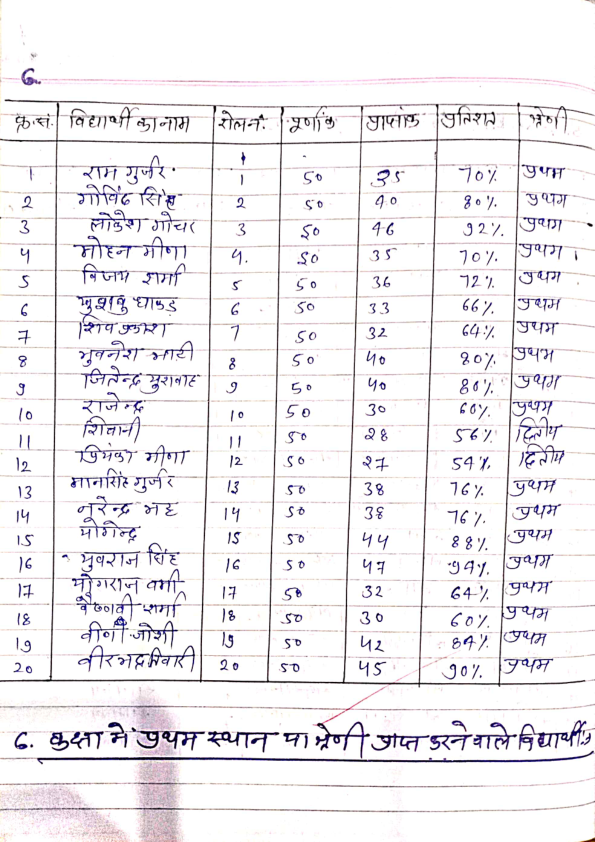 6.
क्र.सं. विद्यार्थी का नाम रोल नं. पूर्णांक प्राप्तांक प्रतिशत श्रेणी
1 राम गुर्जर 1 50 35 70% प्रथम
2 गोविंद सिंह 2 50 40 80% प्रथम
3 लोकेश गोचर 3 50 46 92% प्रथम
4 मोहन मीणा 4. 50 35 70% प्रथम
5 विजय शर्मा 5 50 36 72% प्रथम
6 खुशबु धाकड 6 50 33 66% प्रथम
7 शिव प्रकाश 7 50 32 64% प्रथम
8 भुवनेश भाटी 8 50 40 80% प्रथम
9 जितेन्द्र 9 50 40 80% प्रथम
10 राजेन्द्र 10 50 30 60% प्रथम
11 शिवानी 11 50 28 56% द्वितीय
12 प्रियंका मीणा 12 50 27 54% द्वितीय
13 मानसिंह गुर्जर 13 50 38 76% प्रथम
14 नरेन्द्र 14 50 38 76% प्रथम
15 योगेन्द्र 15 50 44 88% प्रथम
16 युवराज सिंह 16 50 47 94% प्रथम
17 योगराज वर्मा 17 50 32 64% प्रथम
18 वैष्णवी शर्मा 18 50 30 60% प्रथम
19 वीणा जोशी 19 50 42 84% प्रथम
20 वीरभद्र तिवारी 20 50 45 90% प्रथम
6. कक्षा में प्रथम स्थान या श्रेणी प्राप्त करने वाले विद्यार्थी